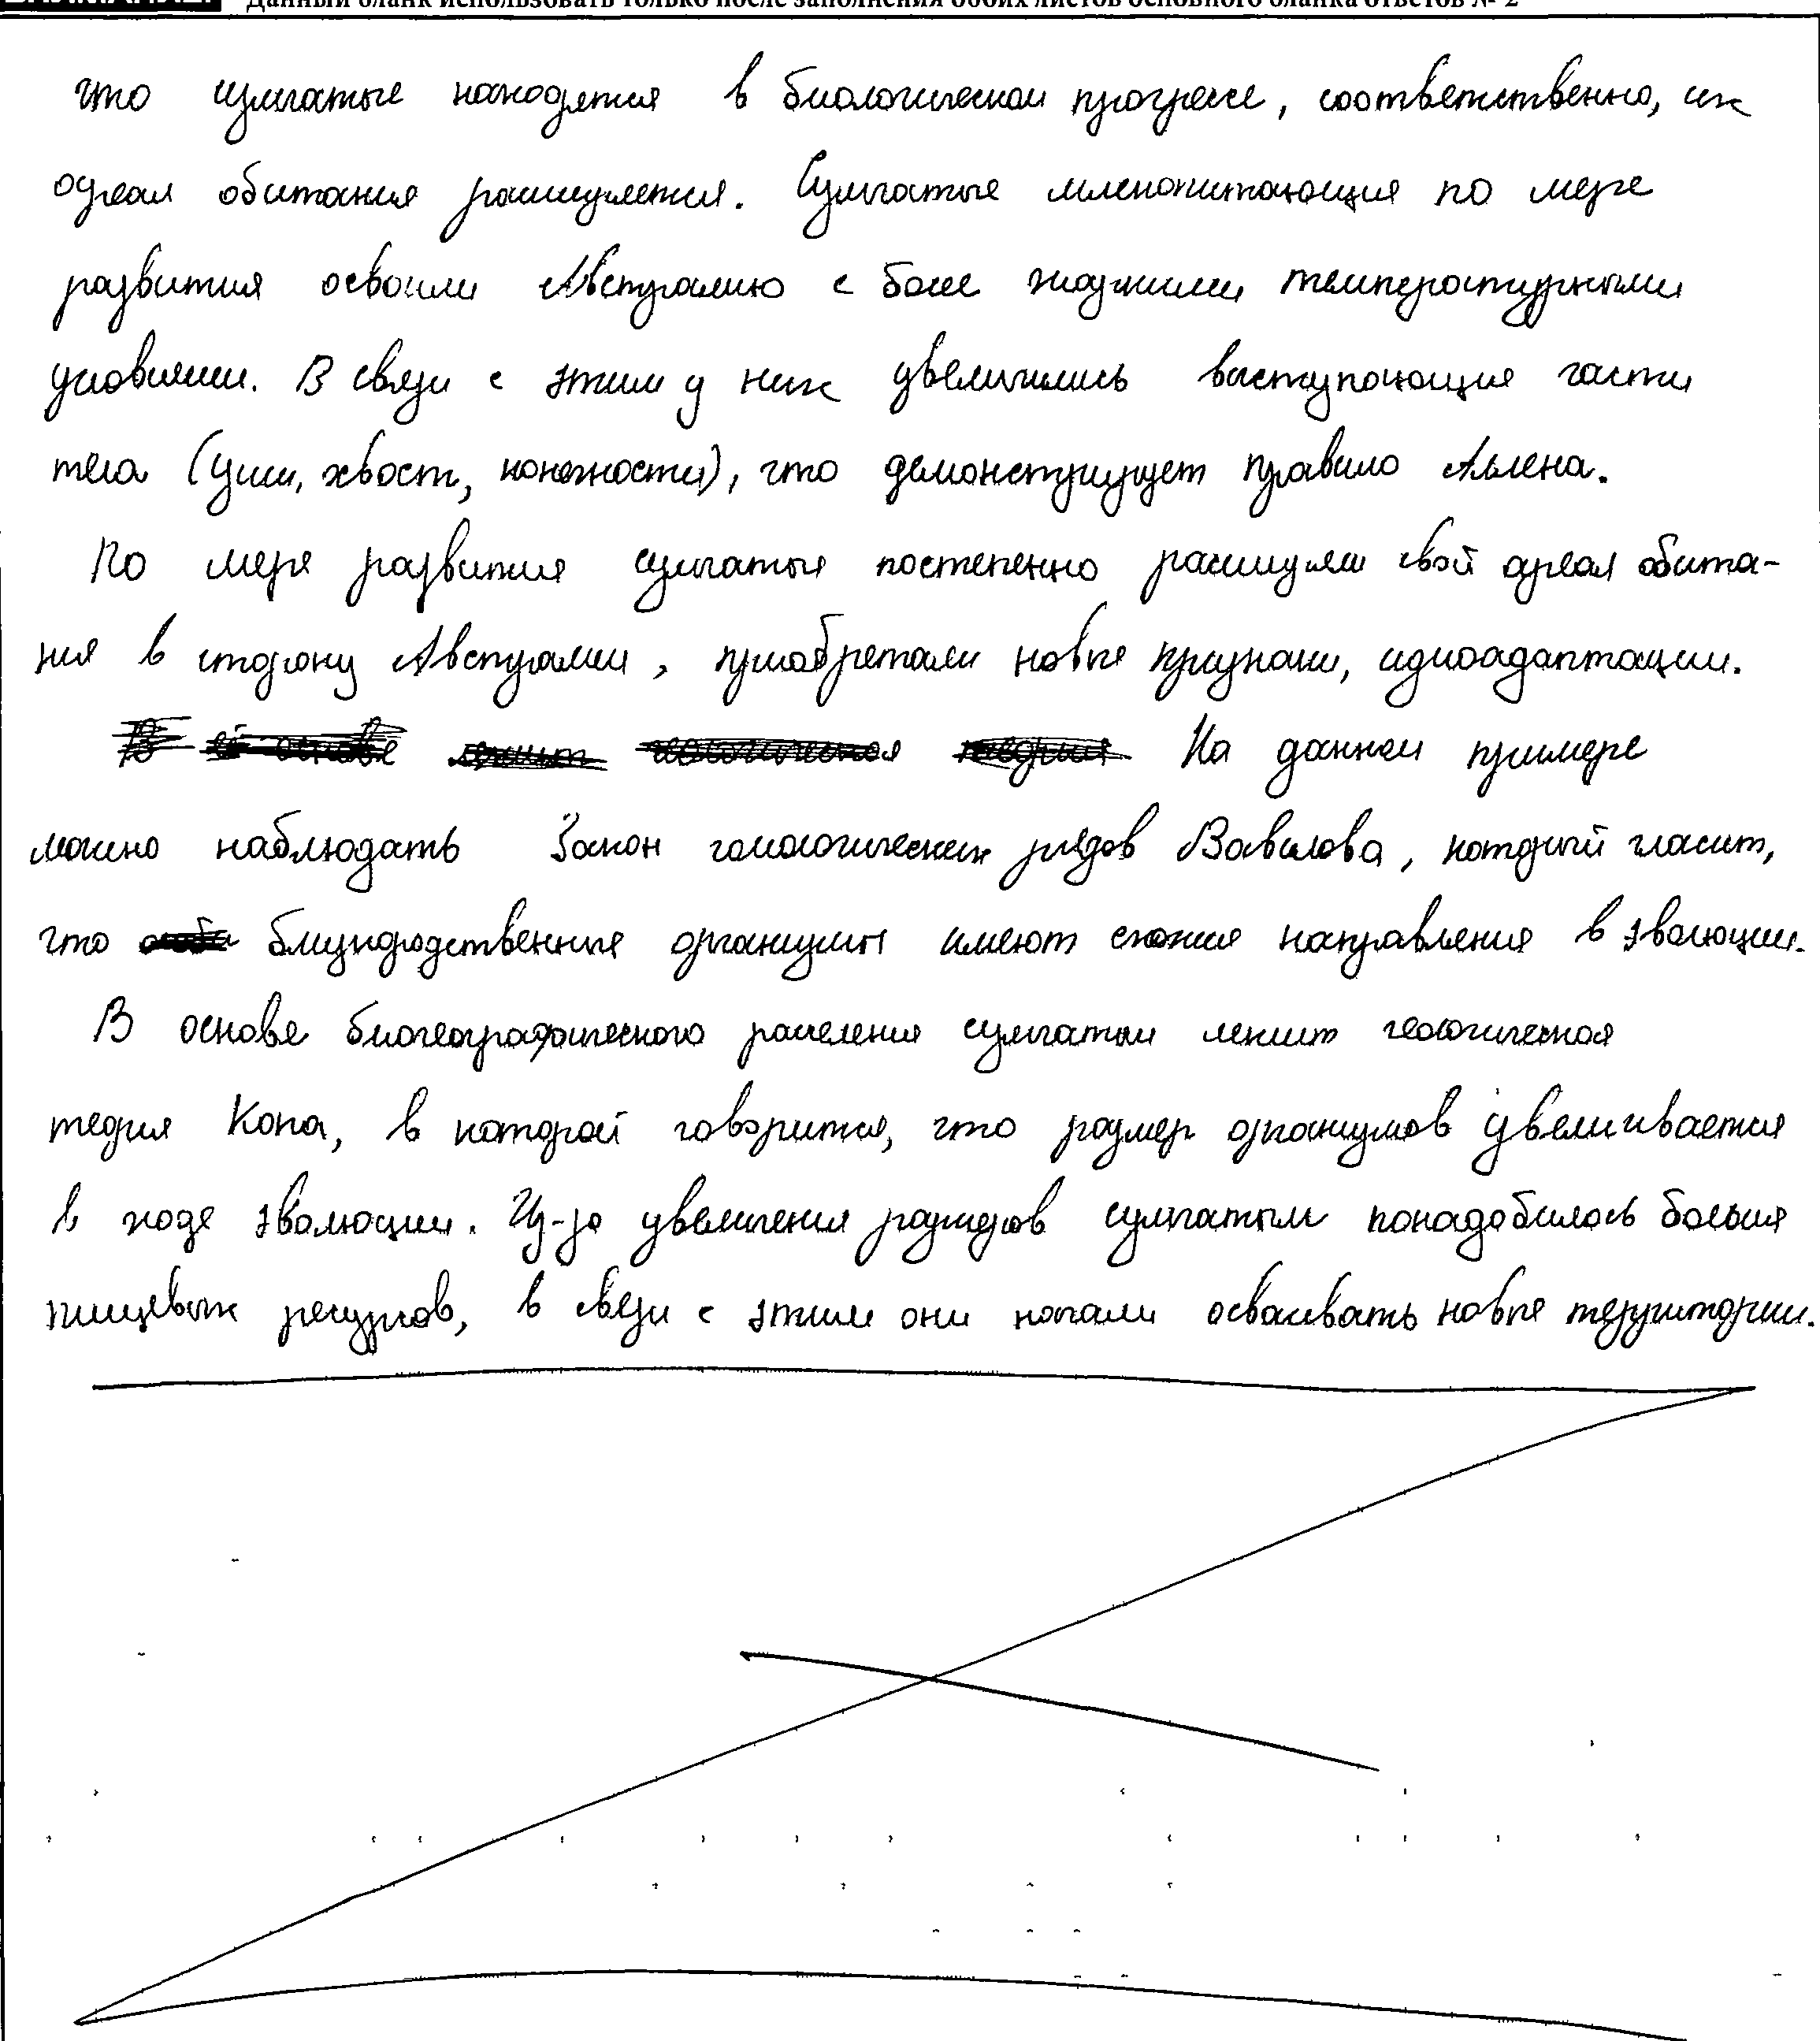 Данный бланк использовать только после заполнения обоих листов основного бланка ответов № 2
что сумчатые находятся в биологическом прогрессе, соответственно, их
ареал обитания расширяется. Сумчатые млекопитающие по мере
развития освоили Австралию с более жаркими температурными
условиями. В связи с этим у них увеличились выступающие части
тела (уши, хвост, конечности), что демонстрирует правило Аллена.
По мере развития сумчатые постепенно расширяли свой ареал обита-
ния в сторону Австралии, приобретали новые признаки, идиоадаптации.
В её основе лежит геологическая теория На данном примере
можно наблюдать Закон гомологических рядов Вавилова, который гласит,
что близкородственные организмы имеют схожие направления в эволюции.
В основе биогеографического расселения сумчатых лежит геологическая
теория Копа, в которой говорится, что размер организмов увеличивается
в ходе эволюции. Из-за увеличения размеров сумчатым понадобилось больше
пищевых ресурсов, в связи с этим они начали осваивать новые территории.